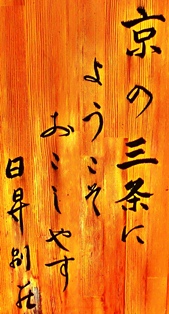 京の三条に
ようこそ
おこしやす
日昇別荘